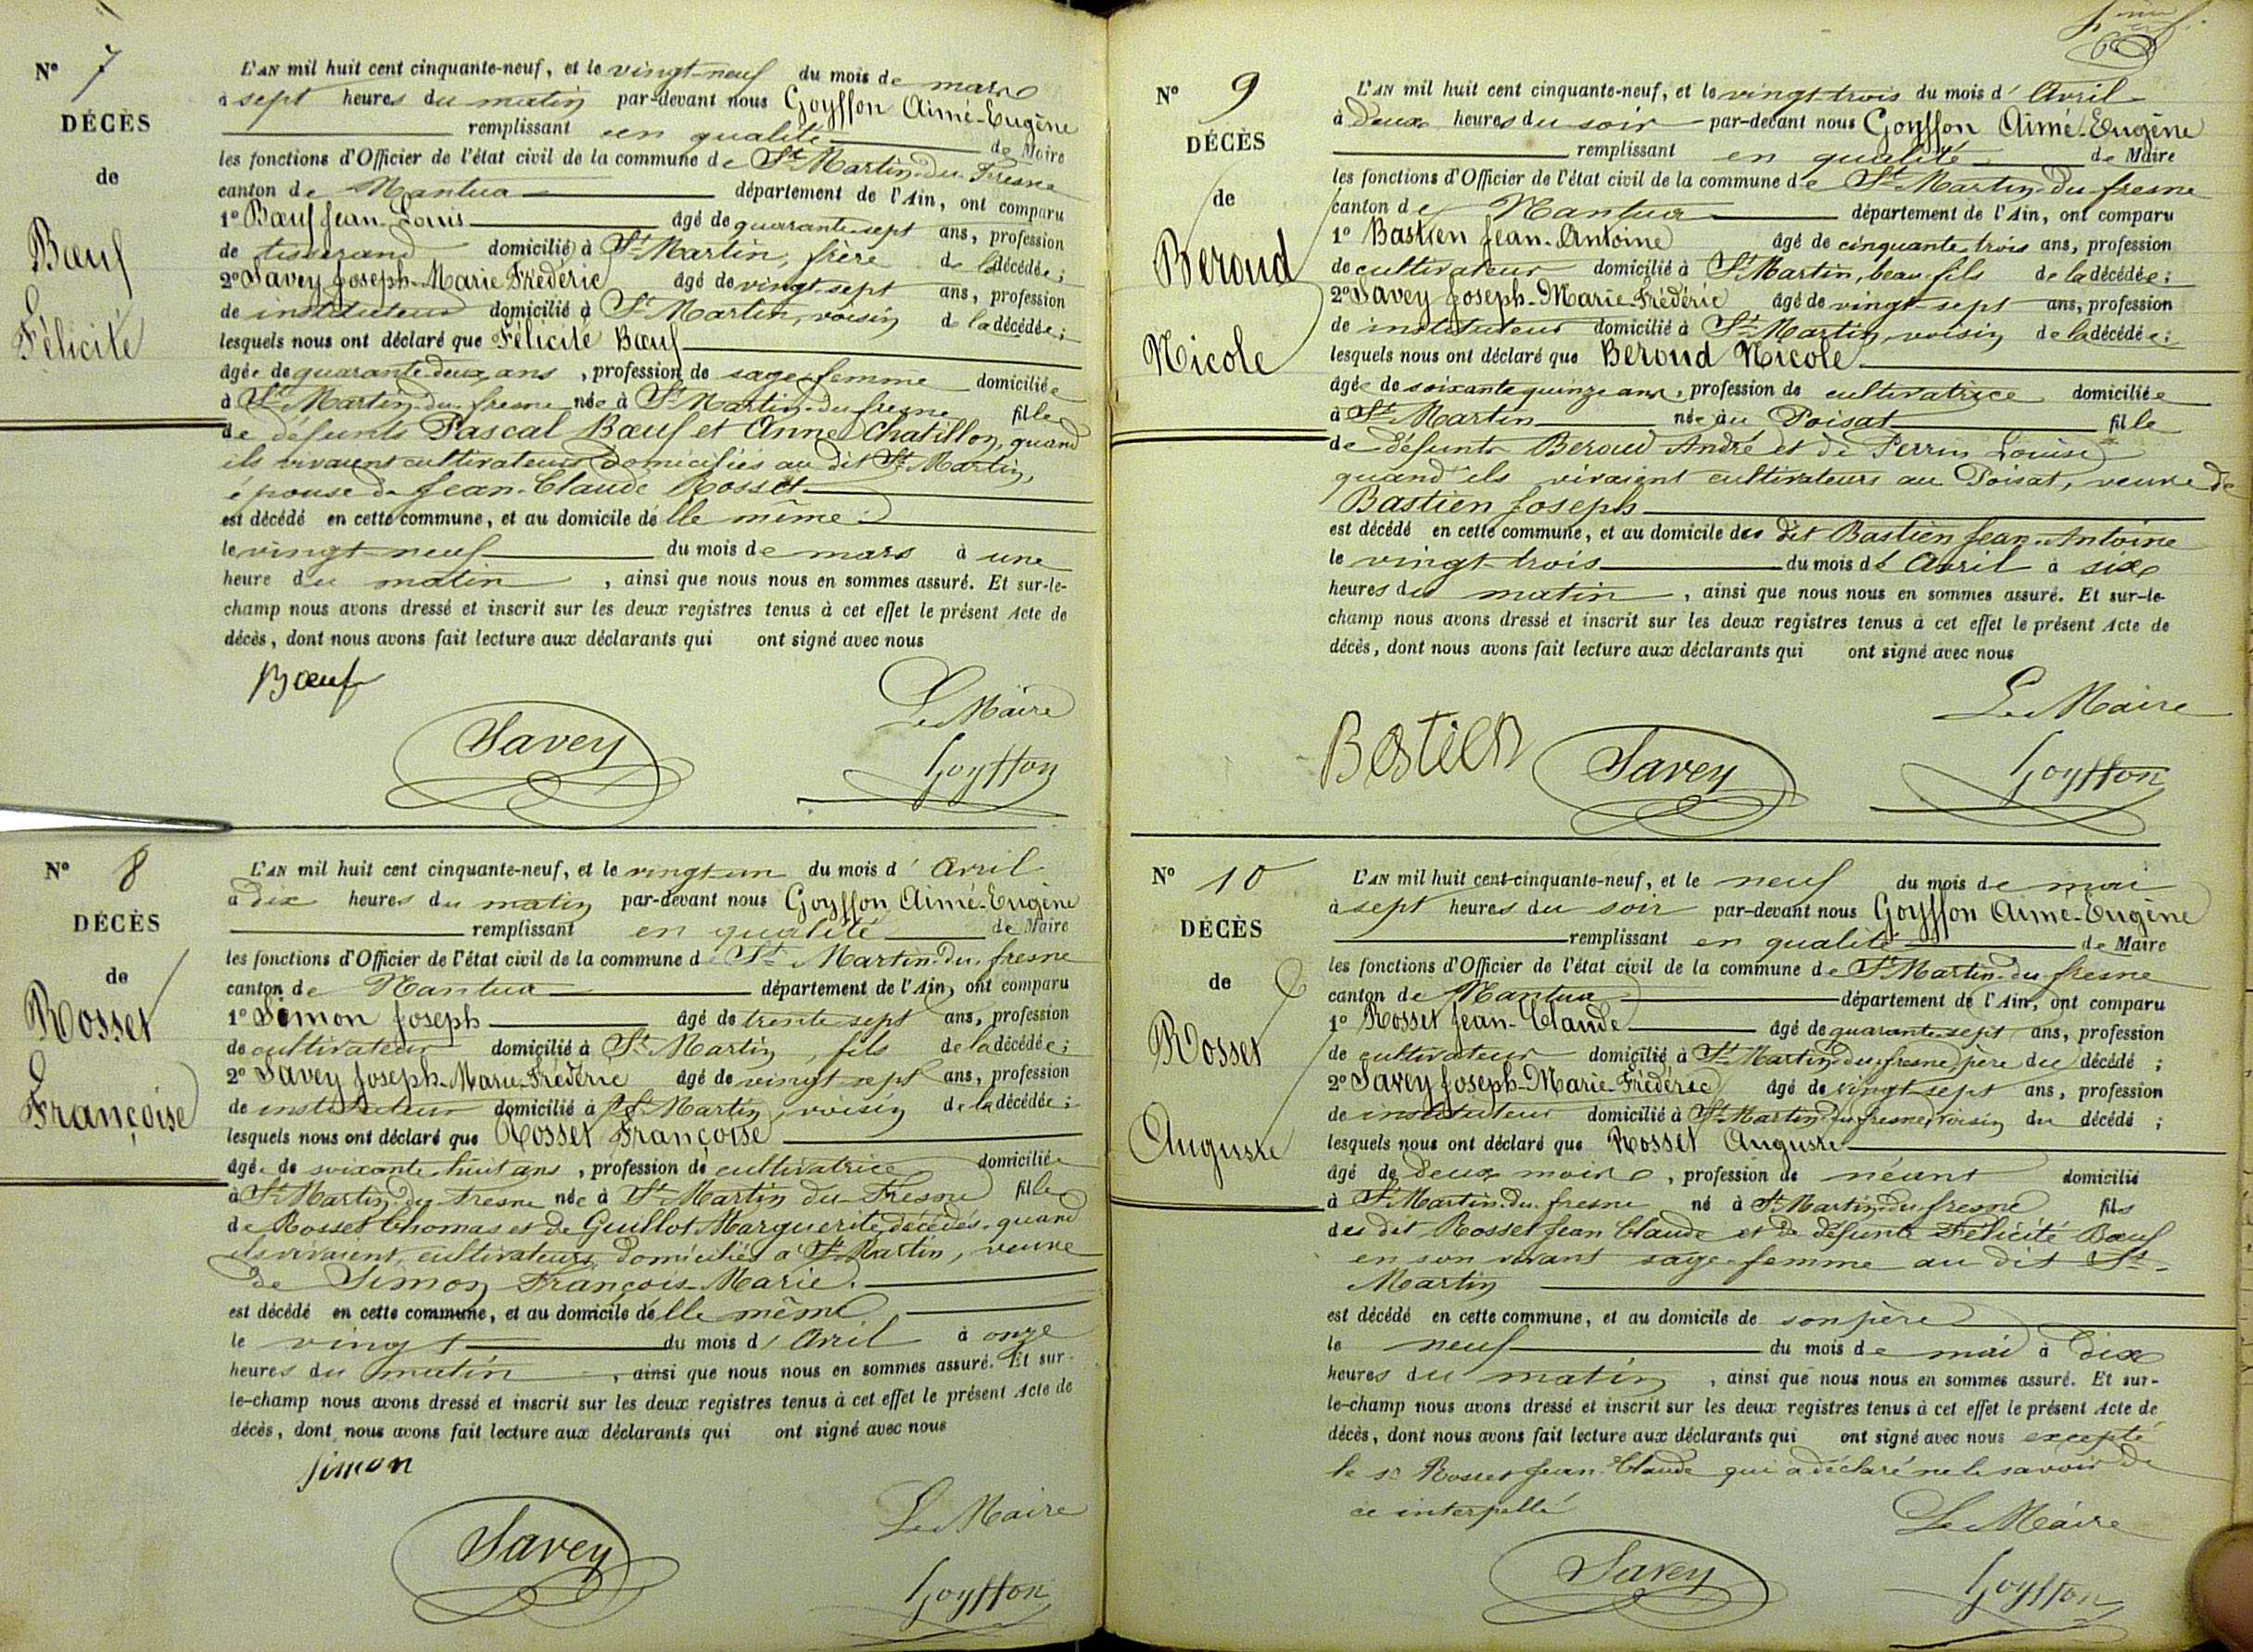 N° 7
DÉCÈS
de
Bœuf
Félicité
L'AN mil huit cent cinquante-neuf, et le vingt-neuf du mois de mars
à sept heures du matin par-devant nous Goyffon Aimé-Eugène
remplissant en qualité de Maire
les fonctions d'Officier de l'état civil de la commune de St Martin-du-Fresne
canton de Nantua département de l'Ain, ont comparu
1° Bœuf Jean-Louis âgé de quarante-sept ans, profession
de tisserand domicilié à St Martin, frère de la décédée;
2° Savey Joseph-Marie-Frédéric âgé de vingt-sept ans, profession
de instituteur domicilié à St Martin, voisin de la décédée;
lesquels nous ont déclaré que Félicité Bœuf
âgée de quarante-deux ans, profession de sage-femme domiciliée
à St Martin-du-fresne née à St Martin-du-fresne fille
de défunts Pascal Bœuf et Anne Chatillon, quand
ils vivaient cultivateurs domiciliés au dit St Martin,
épouse de Jean-Claude Rosset
est décédé en cette commune, et au domicile de lle même
le vingt-neuf du mois de mars à une
heure du matin, ainsi que nous nous en sommes assuré. Et sur-le-
champ nous avons dressé et inscrit sur les deux registres tenus à cet effet le présent Acte de
décès, dont nous avons fait lecture aux déclarants qui ont signé avec nous
Bœuf
Le Maire
Savey
Goyffon
N° 8
DÉCÈS
de
Rosset
Françoise
L'AN mil huit cent cinquante-neuf, et le vingt-un du mois d' Avril
à dix heures du matin par-devant nous Goyffon Aimé-Eugène
remplissant en qualité de Maire
les fonctions d'Officier de l'état civil de la commune d St Martin-du-fresne
canton de Nantua département de l'Ain, ont comparu
1° Simon Joseph âgé de trente-sept ans, profession
de cultivateur domicilié à St Martin, fils de la décédée;
2° Savey Joseph-Marie-Frédéric âgé de vingt-sept ans, profession
de instituteur domicilié à St Martin, voisin de la décédée;
lesquels nous ont déclaré que Rosset Françoise
âgée de soixante-huit ans, profession de cultivatrice domiciliée
à St Martin du fresne née à St Martin du Fresne fille
de Rosset Thomas et de Guillot Marguerite, décédés, quand
ils vivaient, cultivateurs domiciliés à St Martin, veuve
de Simon François-Marie.
est décédé en cette commune, et au domicile de lle même,
le vingt du mois d' Avril à onze
heures du matin, ainsi que nous nous en sommes assuré. Et sur-
le-champ nous avons dressé et inscrit sur les deux registres tenus à cet effet le présent Acte de
décès, dont nous avons fait lecture aux déclarants qui ont signé avec nous
Simon
Le Maire
Savey
Goyffon
N° 9
DÉCÈS
de
Beroud
Nicole
L'AN mil huit cent cinquante-neuf, et le vingt-trois du mois d' Avril
à deux heures du soir par-devant nous Goyffon Aimé-Eugène
remplissant en qualité de Maire
les fonctions d'Officier de l'état civil de la commune de St Martin-du-fresne
canton de Nantua département de l'Ain, ont comparu
1° Bastien Jean-Antoine âgé de cinquante-trois ans, profession
de cultivateur domicilié à St Martin, beau-fils de la décédée;
2° Savey Joseph-Marie-Frédéric âgé de vingt-sept ans, profession
de instituteur domicilié à St Martin, voisin de la décédée;
lesquels nous ont déclaré que Beroud Nicole
âgée de soixante quinze ans, profession de cultivatrice domiciliée
à St Martin née au Poisat fille
de défunts Beroud André et de Perrin Louise
quand ils vivaient cultivateurs au Poisat, veuve de
Bastien Joseph
est décédé en cette commune, et au domicile du dit Bastien Jean-Antoine
le vingt-trois du mois d' Avril à six
heures du matin, ainsi que nous nous en sommes assuré. Et sur-le-
champ nous avons dressé et inscrit sur les deux registres tenus à cet effet le présent Acte de
décès, dont nous avons fait lecture aux déclarants qui ont signé avec nous
Le Maire
Bastien
Savey
Goyffon
N° 10
DÉCÈS
de
Rosset
Auguste
L'AN mil huit cent cinquante-neuf, et le neuf du mois de mai
à sept heures du soir par-devant nous Goyffon Aimé-Eugène
remplissant en qualité de Maire
les fonctions d'Officier de l'état civil de la commune de St Martin-du-fresne
canton de Nantua département de l'Ain, ont comparu
1° Rosset Jean-Claude âgé de quarante-sept ans, profession
de cultivateur domicilié à St Martin-du-fresne, père du décédé;
2° Savey Joseph-Marie-Frédéric âgé de vingt-sept ans, profession
de instituteur domicilié à St Martin-du-fresne, voisin du décédé;
lesquels nous ont déclaré que Rosset Auguste
âgé de deux mois, profession de néant domicilié
à St Martin-du-fresne né à St Martin-du-fresne fils
du dit Rosset Jean Claude et de défunte Félicité Bœuf
en son vivant sage-femme au dit St-
Martin
est décédé en cette commune, et au domicile de son père
le neuf du mois de mai à dix
heures du matin, ainsi que nous nous en sommes assuré. Et sur-
le-champ nous avons dressé et inscrit sur les deux registres tenus à cet effet le présent Acte de
décès, dont nous avons fait lecture aux déclarants qui ont signé avec nous excepté
le sr Rosset Jean-Claude qui a déclaré ne le savoir de
ce interpellé
Le Maire
Savey
Goyffon